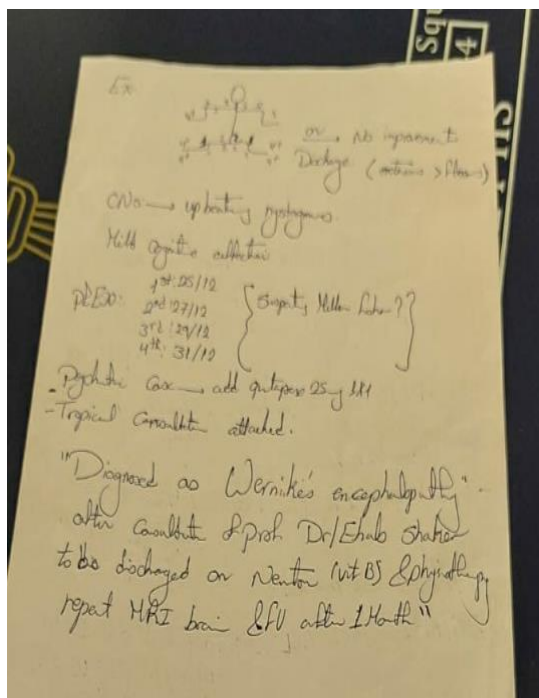 Squ
4
Ex
on → No improvement
Discharge (extensors > flexors)
CNs → upbeating nystagmus.
Mild cognitive
PLEX: 1st: 25/12
2nd: 27/12
3rd: 29/12
4th: 31/12
{ Suspecting Miller ?? }
- Psychiatric → add 25mg
- Tropical Consultation attached.
"Diagnosed as Wernike's encephalopathy"
after Consultation of Prof Dr/Ehab Shaker
to be discharged on (vit B) & physiotherapy
repeat MRI brain & FU after 1 Month"